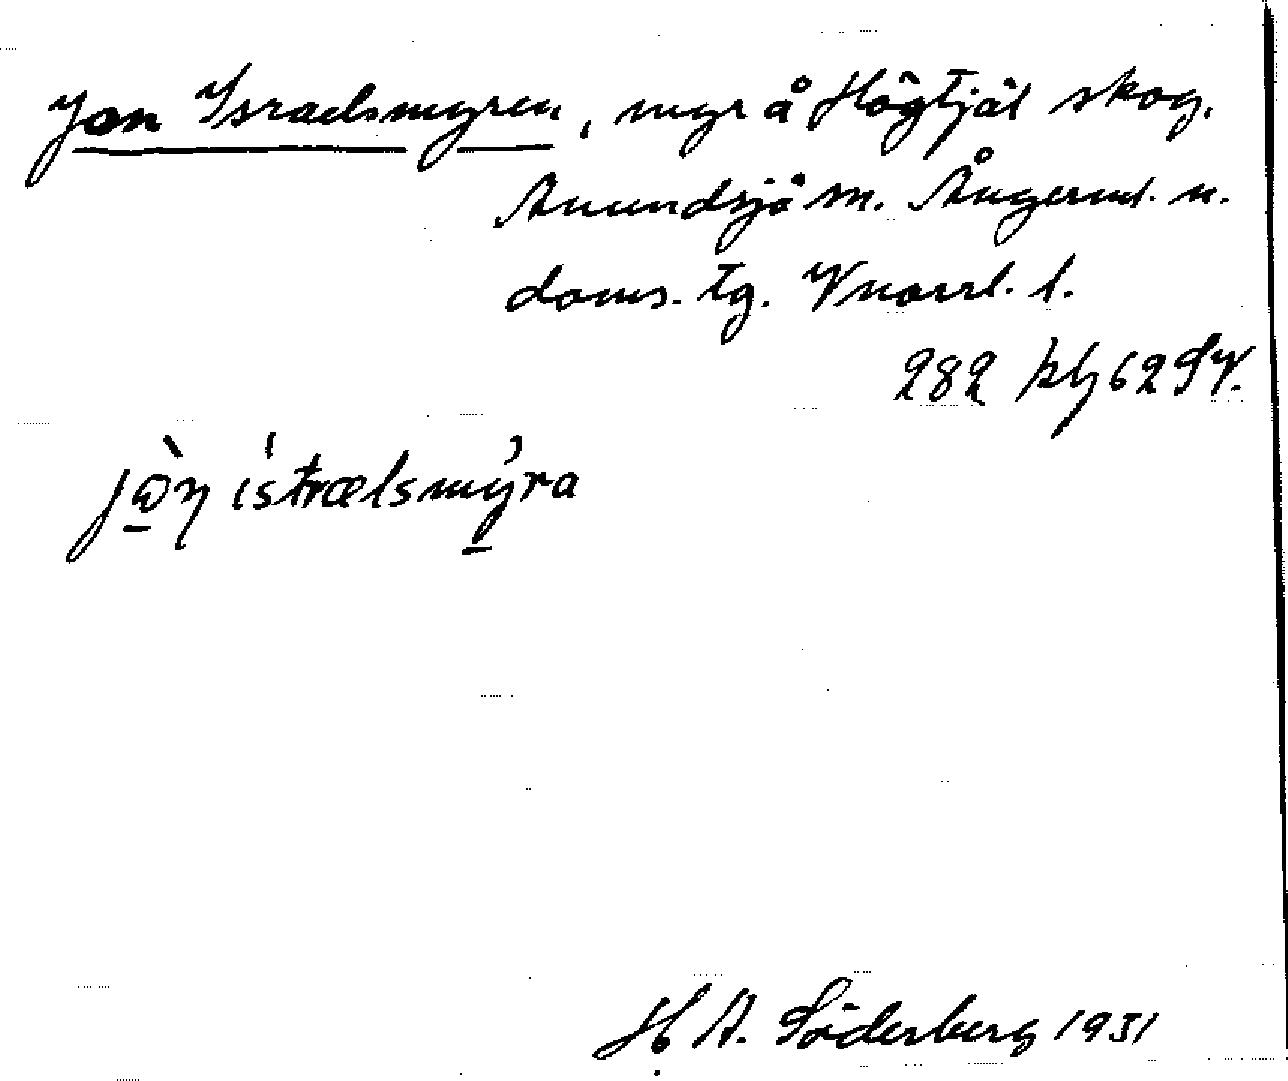 Jon Israelsmyren, myr å Högtjäl skog.
Anundsjö sn. Ångerml. n.
doms. tg. Vnorrl. l.
282 kbg 62 SV.
jò̱n ístrælsmỳ̱ra
H A. Söderberg 1931